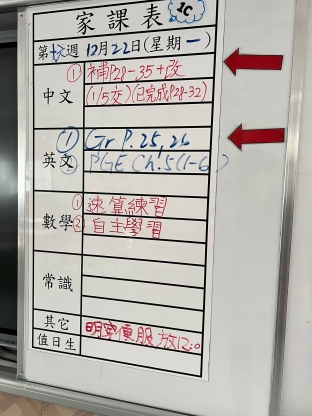 家課表
2C
第十六週 12月22日(星期一)
中文 ①補P28-35+改
(1/5交)(已完成P28-32)
英文 ① Gr P.25, 26
② PGE Ch.5(1-6)
數學 ①速算練習
②自主學習
常識
其它
值日生
明穿便服 放12:0